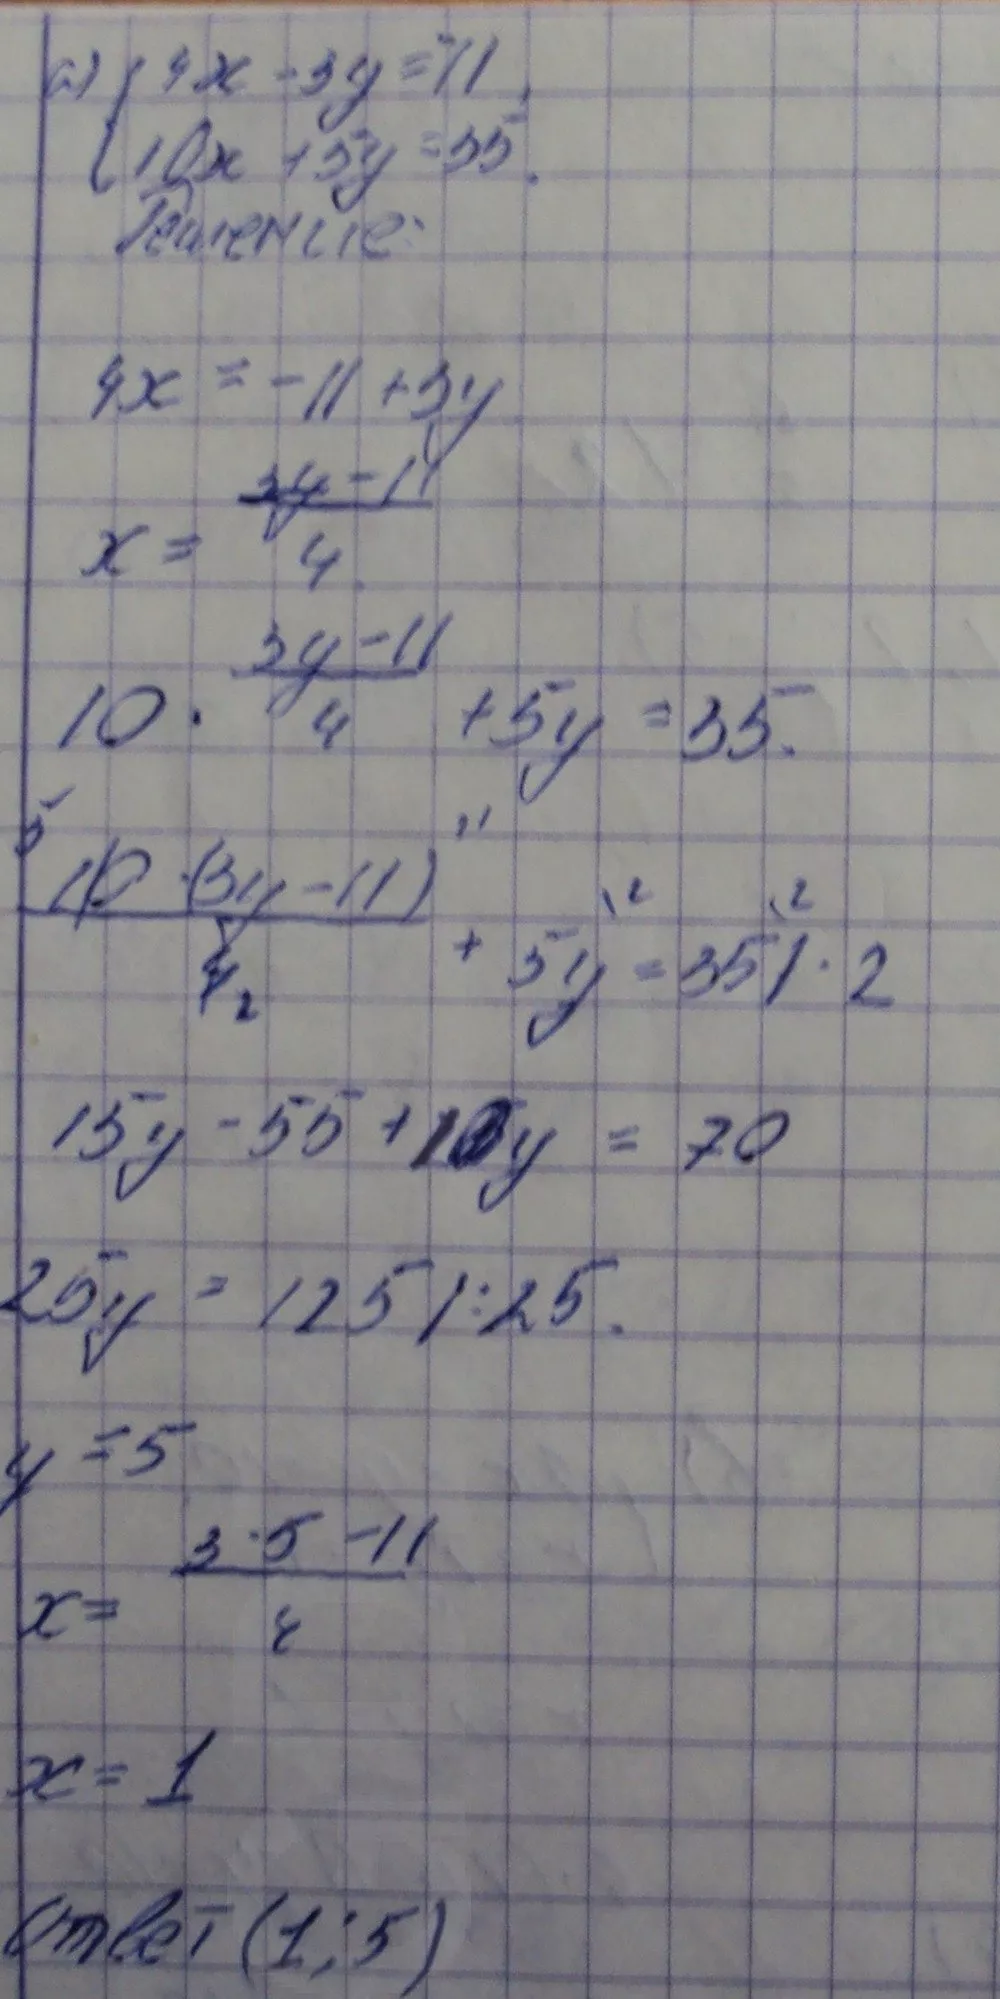 а) { 4x - 3y = -11,
10x + 5y = 35.
Решение:
4x = -11 + 3y
x = (3y - 11)/4
10 · (3y - 11)/4 + 5y = 35.
5 10 · (3y - 11) \1 / 4 2 + 5y \2 = 35 \2 | · 2
15y - 55 + 10y = 70
25y = 125 | : 25.
y = 5
x = (3 · 5 - 11)/4
x = 1
Ответ (1; 5)